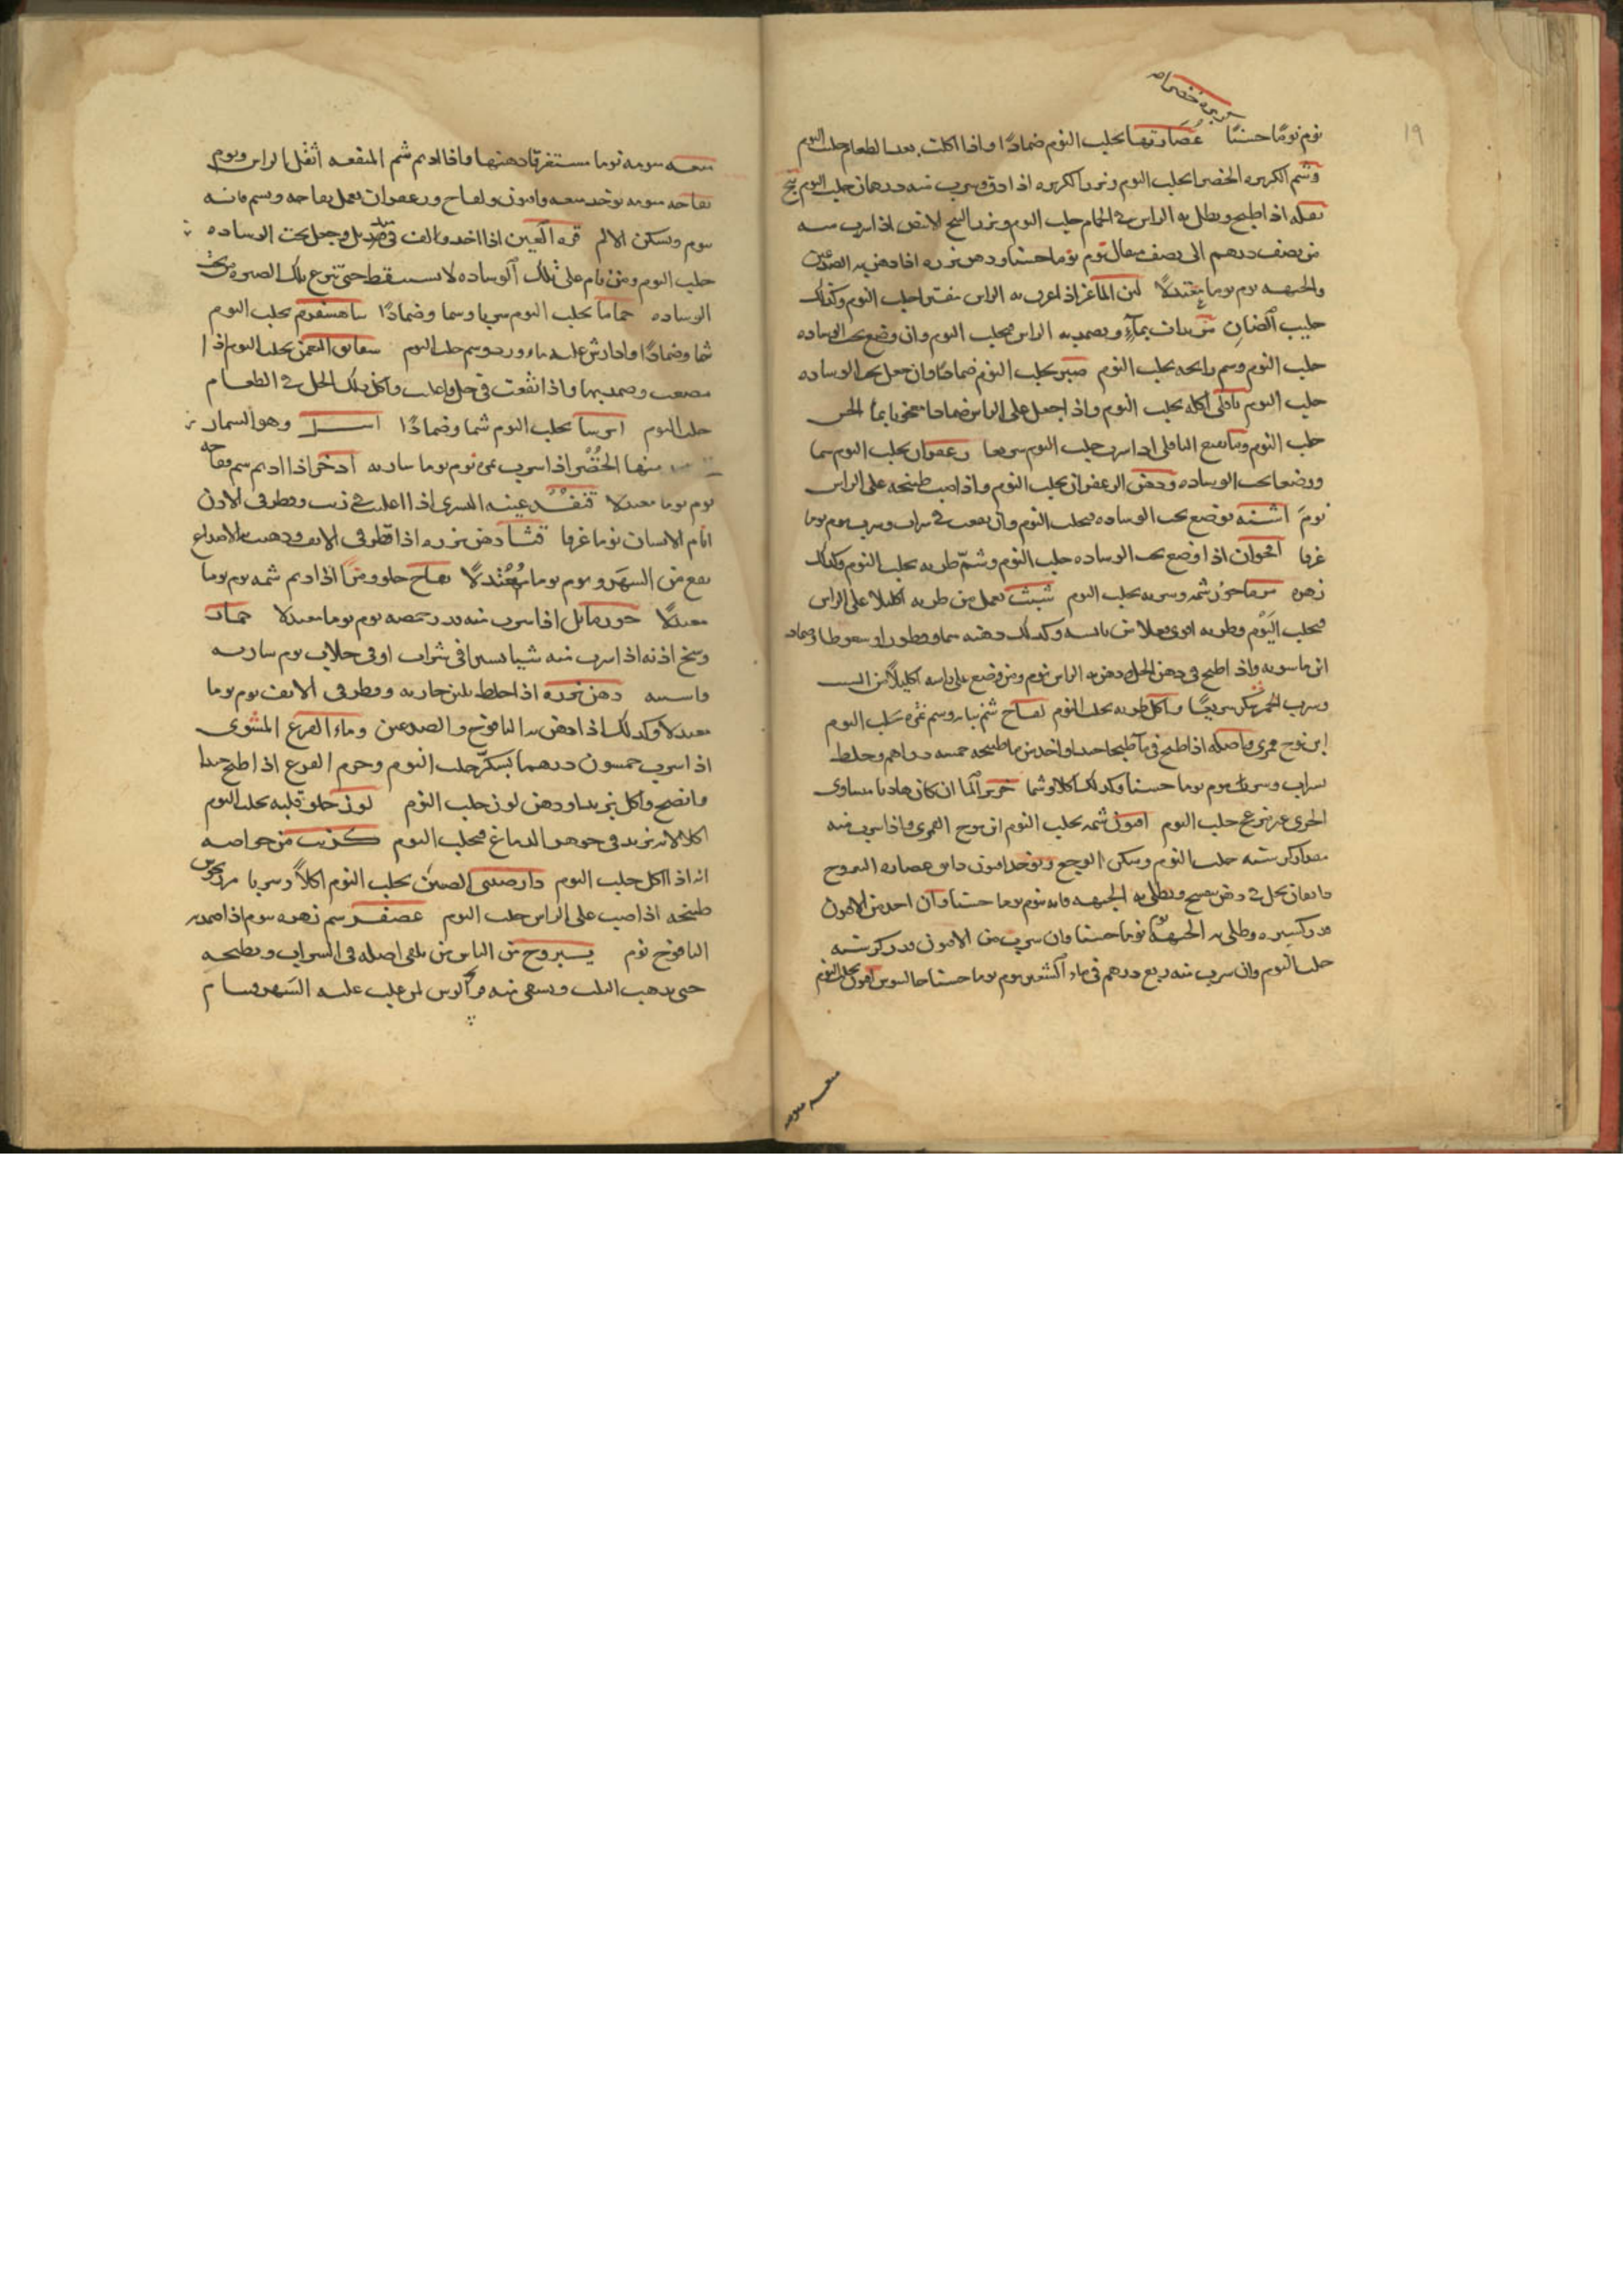 كزبره خضراء
19
نوم نومًا حسنًا عُصَارتها يجلب النوم ضمادًا واذا اكلت بعد الطعام جلب النوم
وشم الكزبره الخضرا يجلب النوم وبزر الكزبره اذا دق وشرب منه درهمان جلب النوم بنج
بقله اذا طبخ ونطل به الراس في الحمام جلب النوم وبزر البنج الابيض اذا شرب منه
من نصف درهم الى نصف مثقال نوم نوما حسنا ودهن بزره اذا دهن به الصدغين
والجبهه نوم نوما معتدلا لبن الماعز اذا غرق به الراس مفترا جلب النوم وكذلك
حليب الضان يداف بماء ويضمد به الراس فيجلب النوم وان وضع تحت الوساده
جلب النوم وشم رايحه يجلب النوم صبر يجلب النوم ضمادا وان جعل تحت الوساده
جلب النوم باقلى اكله يجلب النوم واذا جعل على الراس ضمادا معجونا بماء الخس
جلب النوم وماء نقيع الباقلى اذا شرب جلب النوم سريعا زعفران يجلب النوم شما
ووضعا تحت الوساده ودهن الزعفران يجلب النوم واذا صب طبيخه على الراس
نوم اشنه توضع تحت الوساده فيجلب النوم وان نقعت في شراب وشرب نوم نوما
غرقا اقحوان اذا وضع تحت الوساده جلب النوم وشم طريه يجلب النوم وكذلك
زهره مرماحوز شمه وشربه يجلب النوم شبث يعمل من طريه اكليلا على الراس
فيجلب النوم وطريه اقوى فعلا من يابسه وكذلك دهنه شما وقطورا وسعوطا وضمادا
ابن ماسويه واذا طبخ في دهن الحل ودهن به الراس نوم ومن وضع على راسه اكليلا من الشبت
وشرب الخمر سكر سريعا واكل طريه يجلب النوم لفاح شم نباته وشم ثمره يجلب النوم
ابن نوح قمري واصله اذا طبخ في ماء طبخا جيدا واخذ من ماء طبيخه خمسه دراهم وخلط
بشراب وشرب نوم نوما حسنا وكذلك اكلا وشما خرير الماء ان كان هاديا متساوي
الجري غير مزعج جلب النوم افيون شمه يجلب النوم ابن نوح القمري واذا شرب منه
مقدار كرسنه جلب النوم وسكن الوجع ويوخذ افيون دانق عصاره اليبروح
دانقان يحل في دهن بنفسج ويطلى به الجبهه فانه ينوم نوما حسنا وان اخذ من الافيون
قدر كسيره وطلي به الجبهه نوم نوما حسنا وان شرب من الافيون قدر كرسنه
جلب النوم وان شرب منه ربع درهم في ماء الشعير نوم نوما حسنا جالينوس افيون يجلب النوم
ميعه سومه
ميعه سومه نوما مستغرقا دهنها واذا اديم شم الميعه اثقل الراس ونوم
تفاحه منومه يوخذ ميعه وافيون ولفاح وزعفران يعمل تفاحه ويشم فانه
ينوم ويسكن الالم قره العين اذا اخذ والف في منديل وجعل تحت الوساده
جلب النوم ومن نام على تلك الوساده لا يستيقظ حتى تنزع تلك الصره من تحت
الوساده حماما يجلب النوم شربا وشما وضمادًا شاهسفرم يجلب النوم
شما وضمادًا واذا رش عليه ماء ورد وشم جلب النوم شقايق النعمن يجلب النوم اذا
مضغت وضمد بها واذا انقعت في خل واكل ذلك الخل في الطعام
جلب النوم ايرسا يجلب النوم شما وضمادًا اسل وهو السمار
منها الخضر اذا شرب نوم نوما ساريه اذخر اذا اديم شم فقاحه
نوم نوما معتدلا قنفذ عينه اليسرى اذا اغليت في زيت وقطر في الاذن
انام الانسان نوما غرقا قثا دهن بزره اذا قطر في الانف ودهنت الاصداغ
نفع من السهر ونوم نوما معتدلًا تفاح حلو ومز اذا اديم شمه نوم نوما
معتدلًا جوزماثل اذا شرب منه قدر حمصه نوم نوما معتدلا حمار
وسخ اذنه اذا شرب منه شيا يسيرا في شراب او في جلاب نوم شاربه
واسبته دهن بزره اذا خلط بلبن جاريه وقطر في الانف نوم نوما
معتدلا وكذلك اذا دهن به اليافوخ والصدغين وماء القرع المشوي
اذا شرب خمسون درهما بسكر جلب النوم وجرم القرع اذا طبخ جيدا
وانضج واكل بزبد او دهن لوز جلب النوم لوز حلو قلبه يجلب النوم
اكلا لانه يزيد في جوهر الدماغ فيجلب النوم كرنب من خواصه
انه اذا اكل جلب النوم دارصيني الصين يجلب النوم اكلًا وشربا مرزنجوش
طبيخه اذا صب على الراس جلب النوم عصفر شم زهره ينوم اذا ضمد به
اليافوخ نوم يبروح من الناس من يلقي اصله في الشراب ويطبخه
حتى يذهب الثلث ويسقى منه قواثوس لمن غلب عليه السهر فينام